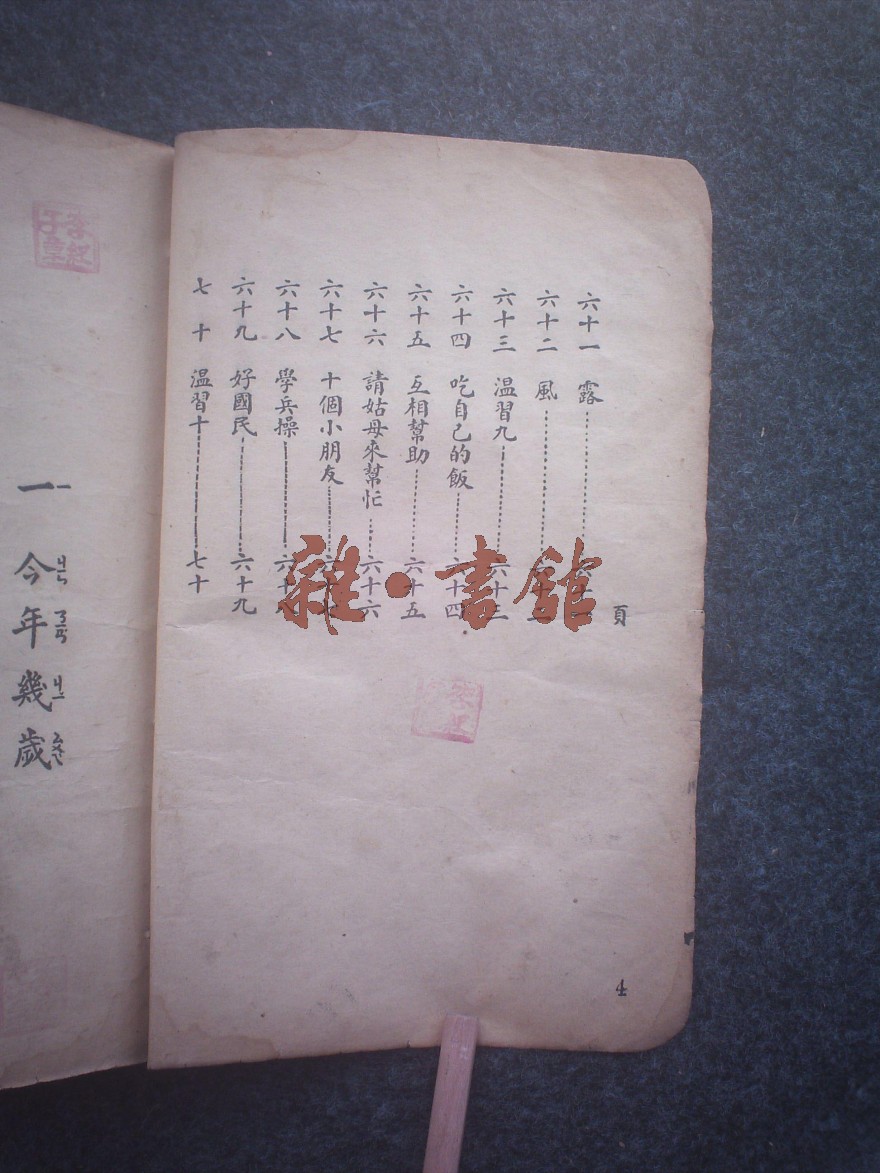 頁
六十一 露
六十二 風
六十三 温習九 六十三
六十四 吃自己的飯 六十四
六十五 互相幫助 六十五
六十六 請姑母來幫忙 六十六
六十七 十個小朋友
六十八 學兵操
六十九 好國民 六十九
七十 温習十 七十
4
雜·書館
一 今年幾歲